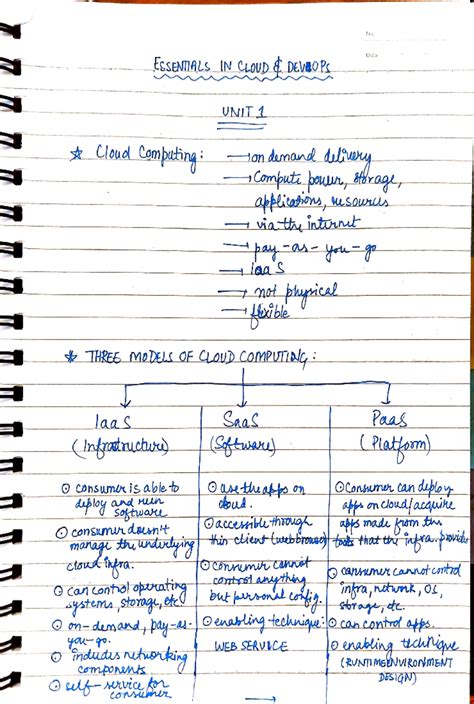 No.
Date
ESSENTIALS IN CLOUD & DEVOPS
UNIT 1
☆ Cloud Computing : → on demand delivery
→ Compute power, storage,
applications, resources
→ via the internet
→ pay-as-you-go
→ IaaS
→ not physical
→ flexible
☆ THREE MODELS OF CLOUD COMPUTING :
IaaS
(Infrastructure)
⊙ consumer is able to
deploy and run
software
⊙ consumer doesn't
manage the underlying
cloud infra.
⊙ can control operating
systems, storage, etc
⊙ on-demand, pay-as-
you-go.
⊙ includes networking
components
⊙ self-service for
consumer
SaaS
(Software)
⊙ use the apps on
cloud.
⊙ accessible through
thin client (web browser)
⊙ consumer cannot
control anything
but personal config.
⊙ enabling technique:
WEB SERVICE
PaaS
(Platform)
⊙ Consumer can deploy
apps on cloud/acquire
apps made from the
tools that the infra. provides
⊙ consumer cannot control
infra, network, OS,
storage, etc.
⊙ can control apps.
⊙ enabling technique
(RUNTIME ENVIRONMENT
DESIGN)
→